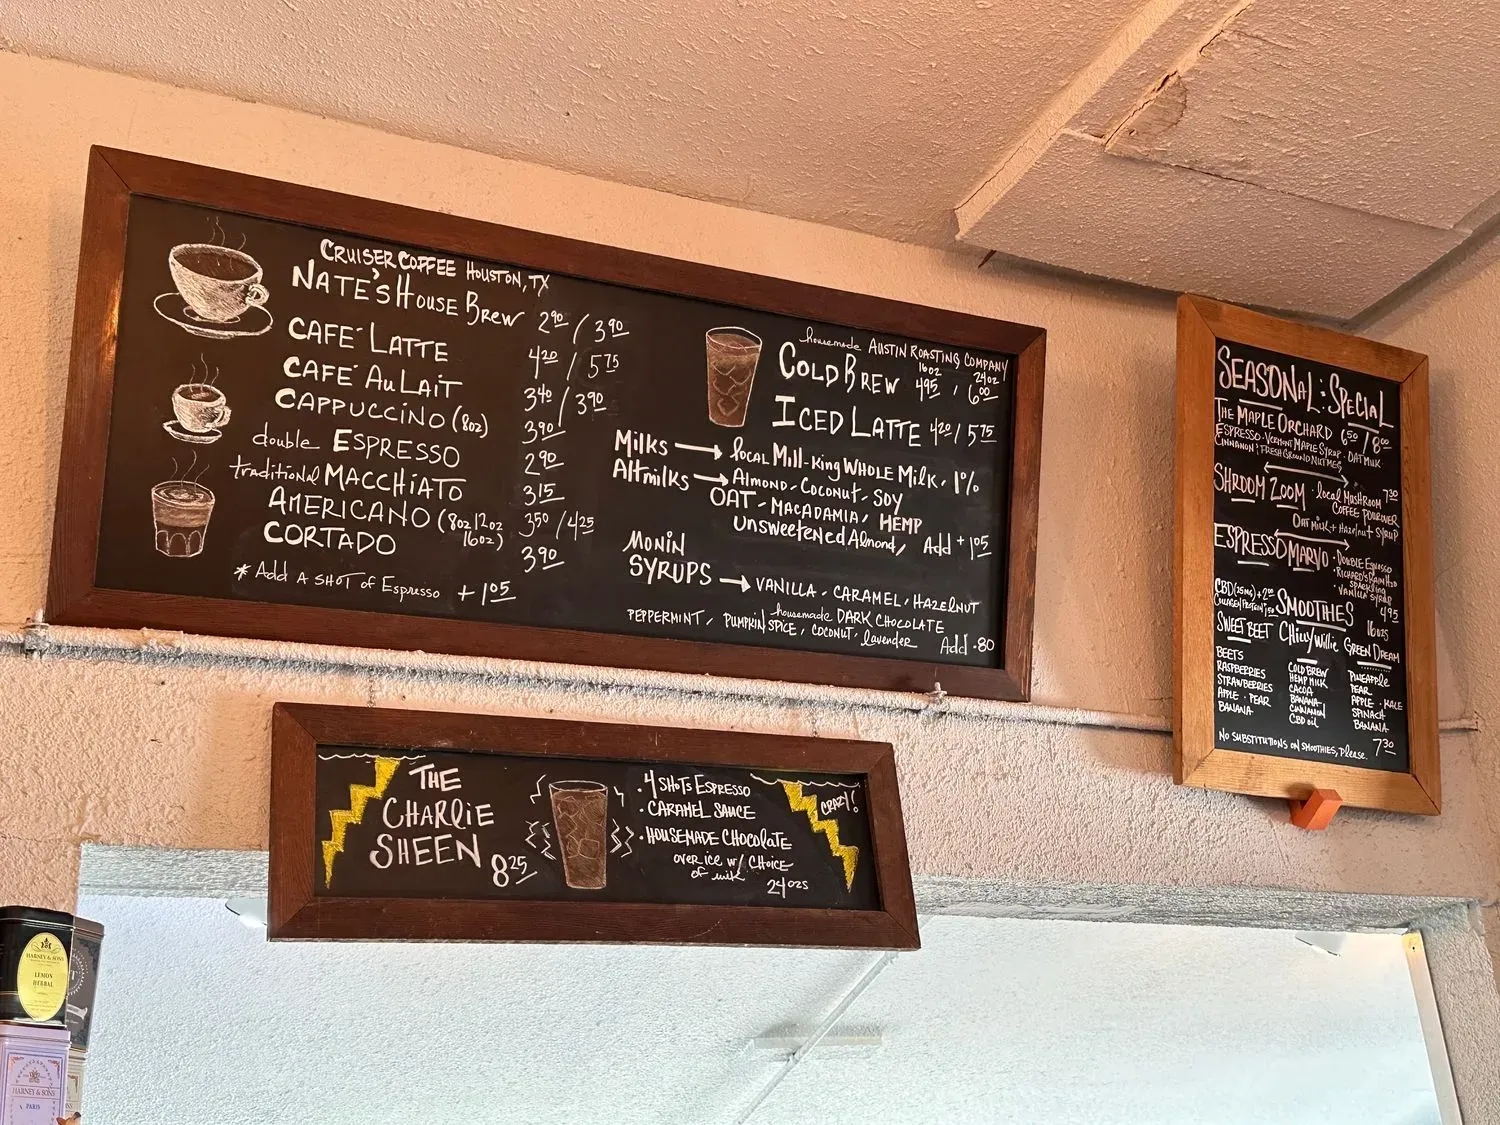 CRUISER COFFEE HOUSTON, TX
NATE'S HOUSE BREW 2.90 / 3.90
CAFÉ LATTE 4.20 / 5.75
CAFÉ AU LAIT 3.40 / 3.90
CAPPUCCINO (8oz) 3.90
double ESPRESSO 2.90
traditional MACCHIATO 3.15
AMERICANO (8oz 12oz 16oz) 3.50 / 4.25
CORTADO 3.90
* Add A SHOT of Espresso +1.05
housemade AUSTIN ROASTING COMPANY
16oz 24oz
COLD BREW 4.95 , 6.00
ICED LATTE 4.20 / 5.75
Milks → local Mill-King WHOLE Milk, 1%
Altmilks → Almond, Coconut, Soy
OAT - MACADAMIA, HEMP
Unsweetened Almond, Add +1.05
MONIN
SYRUPS → VANILLA - CARAMEL, HAZELNUT
housemade DARK CHOCOLATE
PEPPERMINT, PUMPKIN SPICE, COCONUT, lavender Add .80
THE
CHARLIE
SHEEN 8.25
· 4 SHOTS ESPRESSO
· CARAMEL SAUCE
· HOUSEMADE CHOCOLATE
OVER ICE W/ CHOICE
of milk
24 OZS
CRAZY!
SEASONAL: SPECIAL
THE MAPLE ORCHARD 6.50 / 8.00
ESPRESSO - VERMONT MAPLE SYRUP - OAT MILK
CINNAMON, FRESH GROUND NUTMEG
SHROOM ZOOM · local MUSHROOM 7.30
COFFEE POUROVER
OAT MILK + HAZELNUT SYRUP
ESPRESSO MARVO · DOUBLE ESPRESSO
· RICHARD'S RAIN H2O
SPARKLING
VANILLA SYRUP
4.95
CBD (25MG) + 2.00
COLLAGEN PROTEIN
SMOOTHIES 16OZS
SWEET BEET
BEETS
RASPBERRIES
STRAWBERRIES
APPLE · PEAR
BANANA
CHilly Willie
COLD BREW
HEMP MILK
CACOA
BANANA
CINNAMON
CBD oil
GREEN DREAM
PINEAPPLE
PEAR
APPLE · KALE
SPINACH
BANANA
NO SUBSTITUTIONS ON SMOOTHIES, Please. 7.30
HARNEY & SONS
LEMON
HERBAL
HARNEY & SONS
PARIS